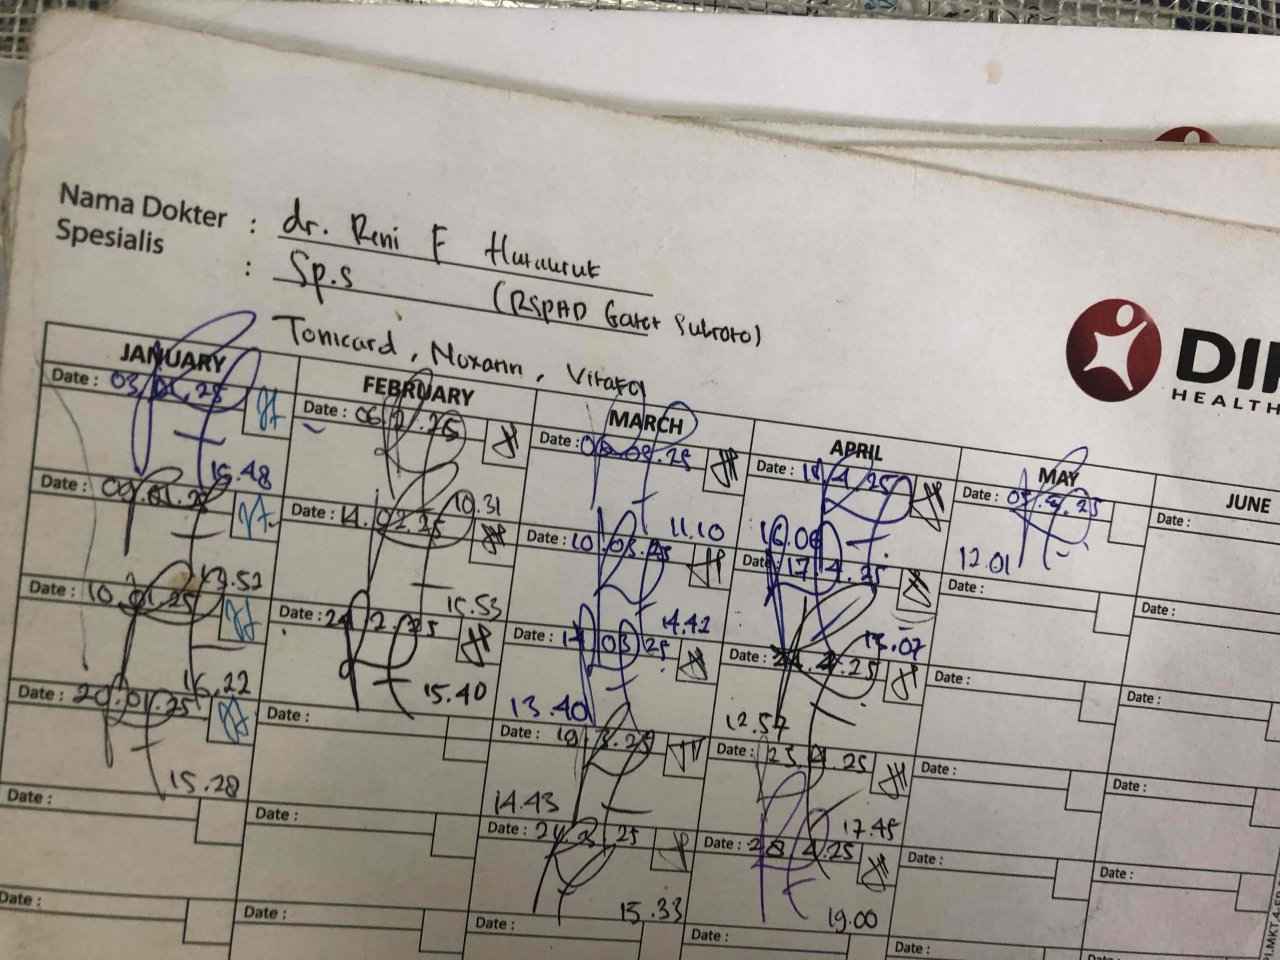 Nama Dokter : dr. Reni F Hutauruk
Spesialis : Sp.s (RSPAD Gatot Subroto)
Tonicard, Noxann, Vitafol
DIP
HEALTH
JANUARY
Date : 03.01.25
15.48
Date : 09.01.25
13.52
Date : 10.01.25
16.22
Date : 20.01.25
15.28
Date :
Date :
FEBRUARY
Date : 06.2.25
10.31
Date : 14.02.25
15.53
Date : 24.2.25
15.40
Date :
Date :
Date :
MARCH
Date : 03.25
11.10
Date : 10.03.25
14.42
Date : 14 03 25
13.40
Date : 19.3.25
14.43
Date : 24.3.25
15.33
Date :
APRIL
Date : 4.25
16.06
Date : 17.4.25
13.07
Date : 4.25
12.57
Date : 25.4.25
17.45
Date : 28.4.25
19.00
Date :
MAY
Date : 05.5.25
12.01
Date :
Date :
Date :
Date :
Date :
JUNE
Date :
Date :
Date :
Date :
Date :
Date :